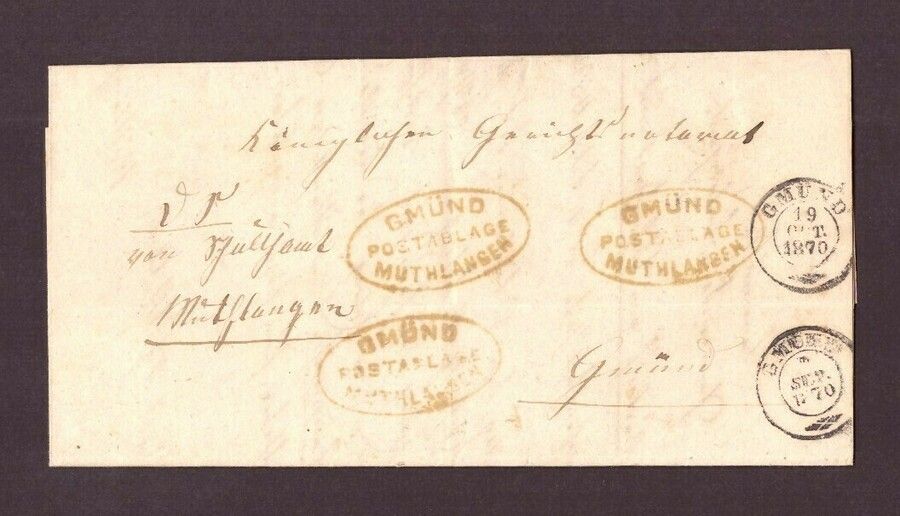 Königlichen Gerichtsnotariat
D S
von Schulth.amt
Muthlangen
GMÜND
POSTABLAGE
MUTHLANGEN
GMÜND
POSTABLAGE
MUTHLANGEN
GMÜND
19
OCT.
1870
GMÜND
POSTABLAGE
MUTHLANGEN
Gmünd
GMÜND
SEP.
1870